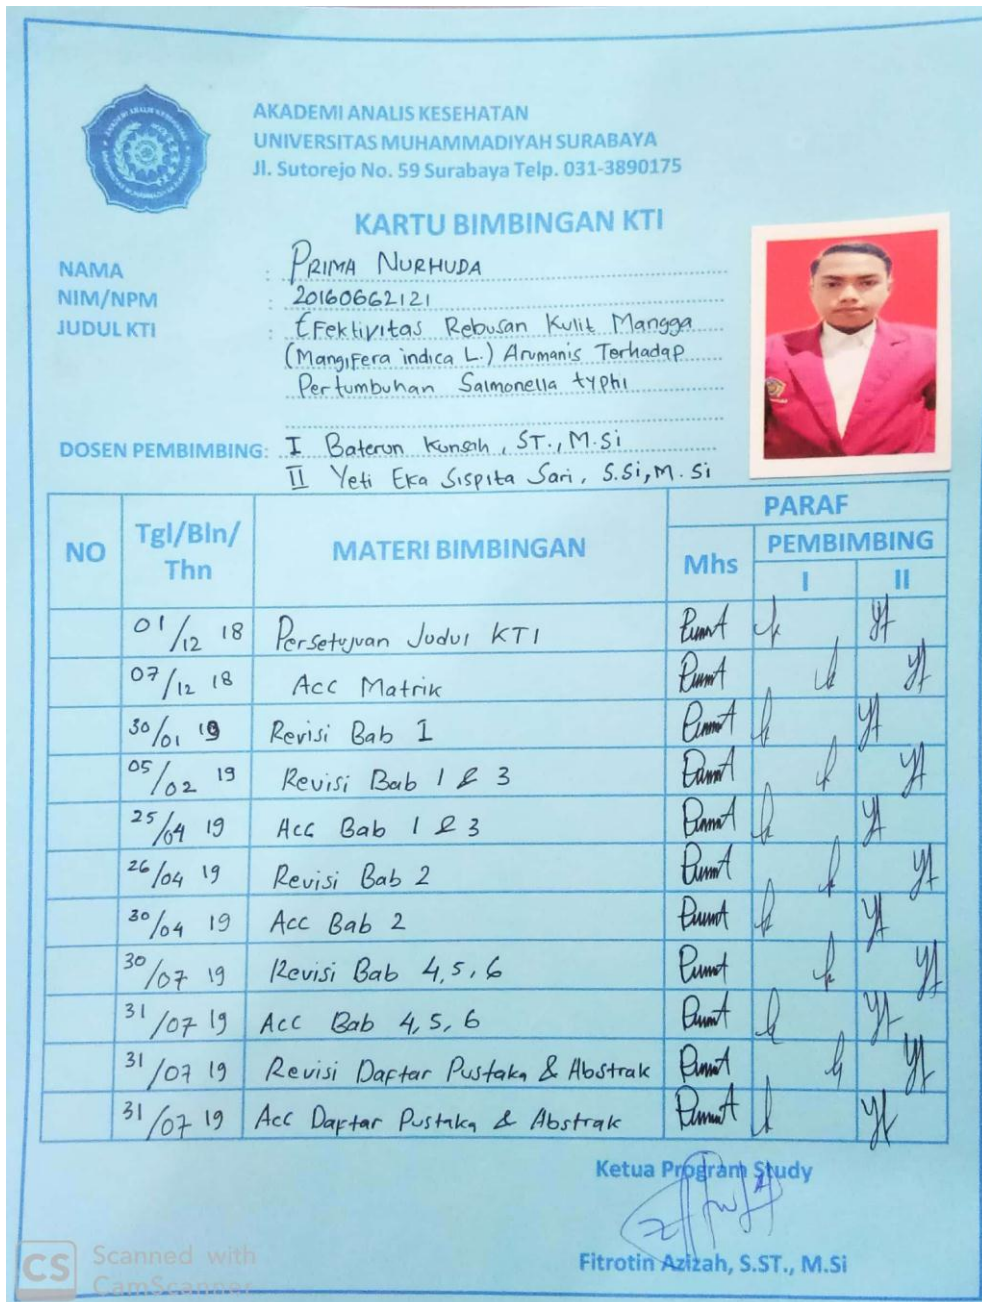 AKADEMI ANALIS KESEHATAN
UNIVERSITAS MUHAMMADIYAH SURABAYA
Jl. Sutorejo No. 59 Surabaya Telp. 031-3890175
KARTU BIMBINGAN KTI
NAMA : PRIMA NURHUDA
NIM/NPM : 20160662121
JUDUL KTI : Efektivitas Rebusan Kulit Mangga
(Mangifera indica L.) Arumanis Terhadap
Pertumbuhan Salmonella typhi
DOSEN PEMBIMBING: I Baterun Kunsah, ST., M.Si
II Yeti Eka Sispita Sari, S.Si, M.Si
NO Tgl/Bln/Thn MATERI BIMBINGAN PARAF
Mhs PEMBIMBING
I II
01/12 18 Persetujuan Judul KTI
07/12 18 Acc Matrik
30/01 19 Revisi Bab 1
05/02 19 Revisi Bab 1 & 3
25/04 19 Acc Bab 1 & 3
26/04 19 Revisi Bab 2
30/04 19 Acc Bab 2
30/07 19 Revisi Bab 4, 5, 6
31/07 19 Acc Bab 4, 5, 6
31/07 19 Revisi Daftar Pustaka & Abstrak
31/07 19 Acc Daftar Pustaka & Abstrak
Ketua Program Study
Fitrotin Azizah, S.ST., M.Si
CS Scanned with
CamScanner